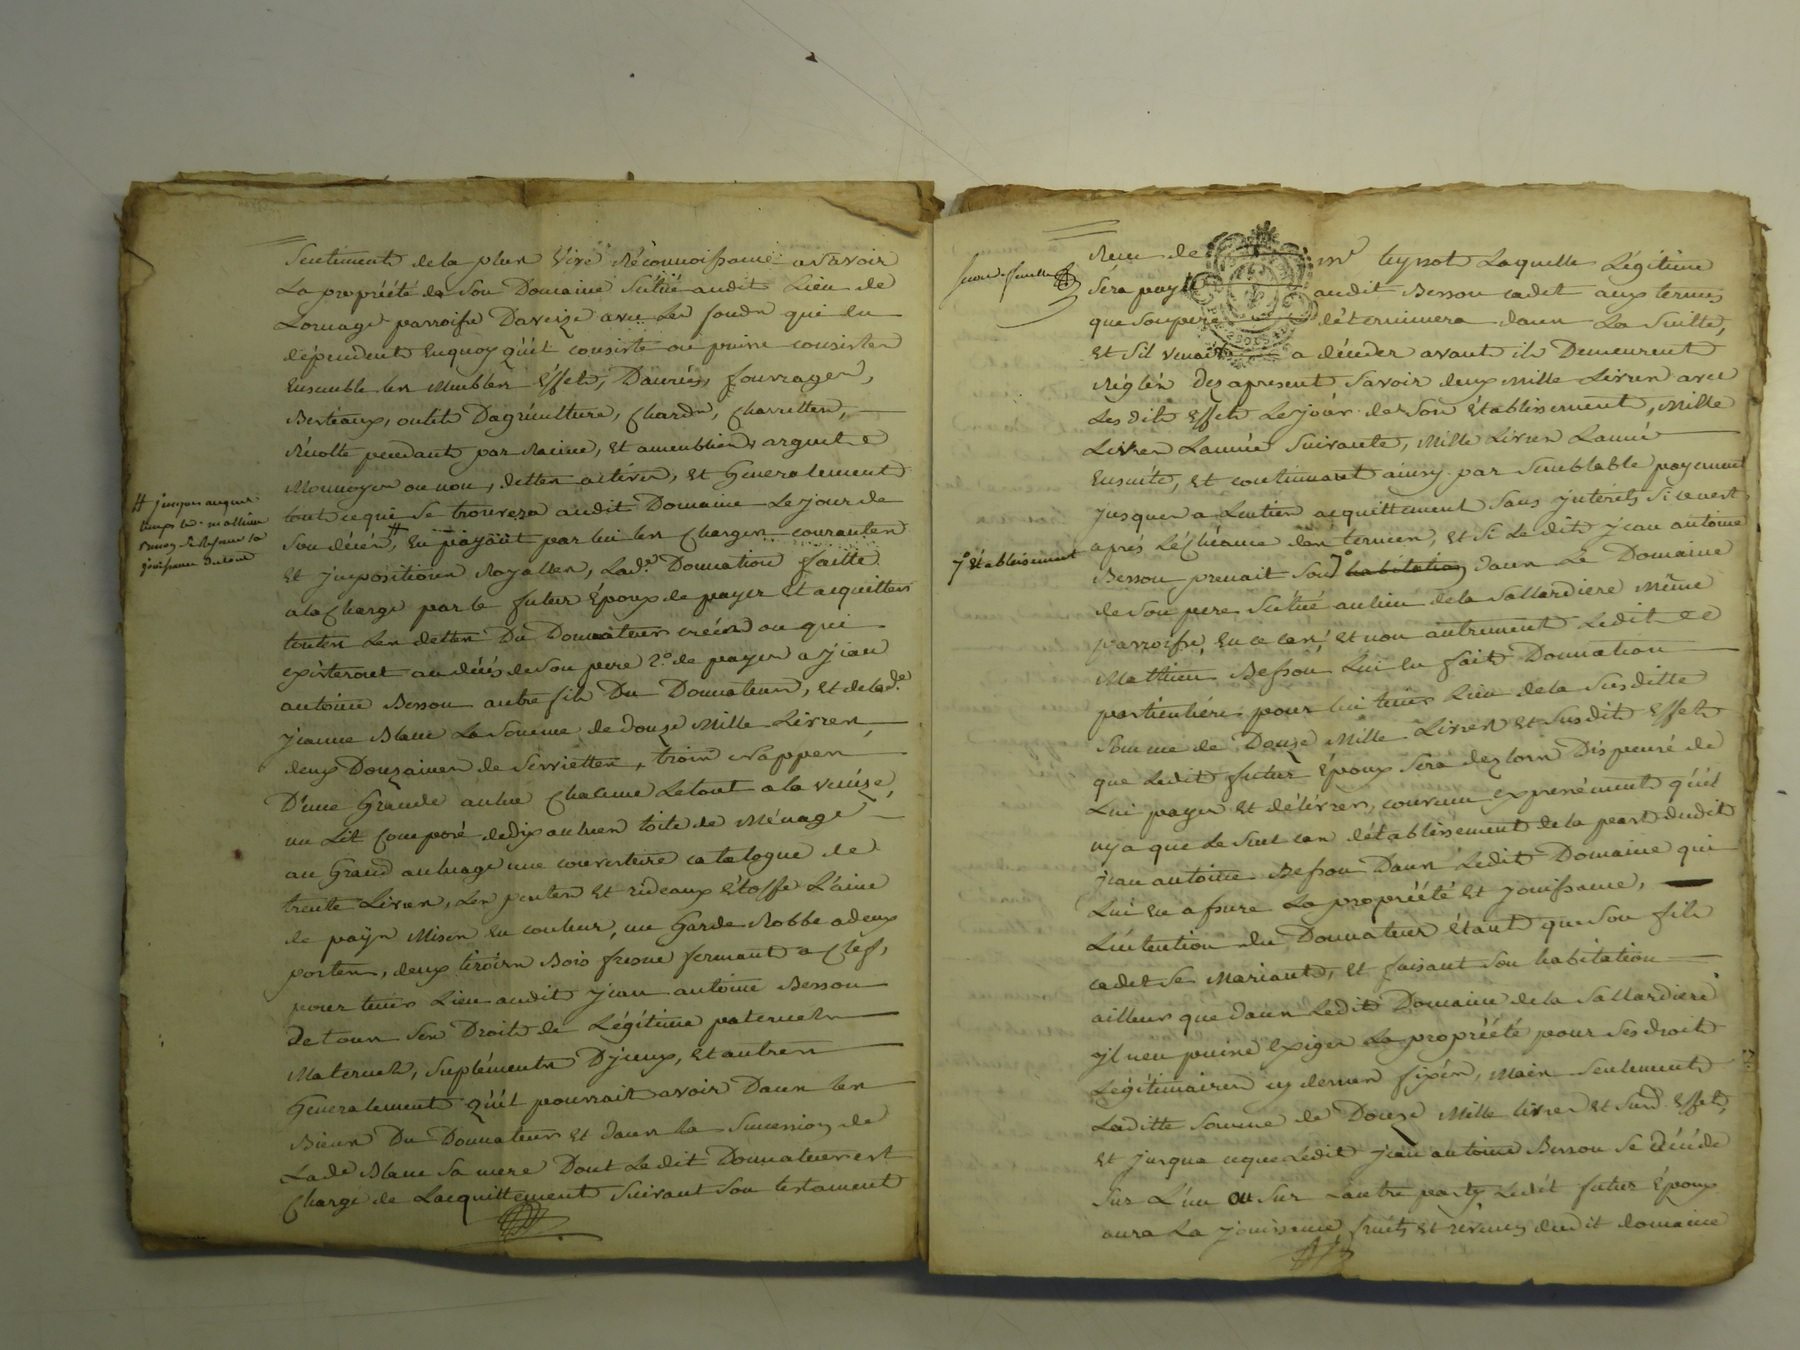 Sentiment de la plus vive réconnoissance a savoir
La propriété de Son Domaine Scitué audit Lieu de
Lornage parroisse Daveize avec Les fonds qui en
dépendent Enquoy qu'il consiste ou puisse consister
Ensemble les Meubles Effets, Danrées, fourrages,
Besteaux, outils Dagriculture, Chards, Charrettes,
Récolte pendant par Racine, et ameublies, argent
Monnoyer ou non, dettes actives, et Generalement
tout ce qui Se trouvera audit Domaine Le jour de
Son décés, # En payant par lui les Charges courantes
Et jmpositions Royalles, Lad.e Donnation faitte
a la Charge par le futur Époux de payer Et acquitter
toutes Les dettes Du Donnateur créées ou qui
existeront au décés de Son pere 2.o de payer a jean
antoine Besson autre fils Du Donnateur, et de lad.e
jeanne Blanc La Somme de douze Mille Livres,
deux Douzaines de Serviettes, trois Nappes
D'une Grande aulne Chacune Letout a la venize,
un Lit Composé de dix aulnes toile de Ménage
au Grand aulnage une couverture catalogne de
trente Livres, Les pentes Et rideaux Etoffe Laine
de païn Mises En couleur, un Garde Robbe a deux
portes, deux tiroirs Bois fresne fermant a Clef,
pour tenir Lieu audit jean antoine Besson
De tous Ses Droits de Légitime paternels
Maternels, Supléments D'jceux, et autres
Generalement qu'il pourrait avoir Dans les
Biens Du Donnateur Et dans la Succession de
Lad.e Blanc Sa mere Dont Ledit Donnateur est
Chargé de Lacquittement Suivant Son testament
# jusques auquel
temps led. mathieu
Besson se Reserve la
jouissance dutout
Recu de m.e teyssot Laquelle Légitime
Sera payée audit Besson cadet aux termes
que Son pere déterminera dans La Suitte,
et Sil venait a déceder avant ils Demeurent
Réglés Des apresent Savoir deux Mille Livres avec
Lesdits effets Le jour de Son établissement, Mille
Livres Lannée Suivante, Mille Livres Lannée
Ensuite, et continuant ainsy par Semblable payement
jusques a Lentier acquittement Sans jnterets Si ce nest
après Léchéance des termes, et Si Ledit jean antoine
Besson prenait Son habitation dans Le Domaine
de Son pere Scitué au lieu de la Sallardiere Même
parroisse, En ce cas, et non autrement Ledit
Mathieu Besson Lui En fait Donnation
particuliére pour lui tenir Lieu de la Susditte
Somme de Douze Mille Livres et Susdits effets
que Ledit futur Époux Sera dez lors Dispensé de
Lui payer et délivrer, convenu expressément qu'il
ny a que Le Seul cas détablissement de la part dudit
jean antoine Besson Dans Ledit Domaine qui
Lui En assure La propriété Et jouissance,
Lintention du Donnateur étant que Son fils
cadet Se Mariant, et faisant Son habitation
ailleurs que dans Ledit Domaine de la Sallardiere
jl nen puisse Exiger La propriété pour Ses droits
Légitimaires cy dessus fixés, Mais Seulement
Laditte Somme de Douze Mille livres et Susd. effets,
Et jusqua ceque Ledit jean antoine Besson Se décide
Sur L'un ou Sur Lautre party Ledit futur Époux
aura La jouissance fruits et revenus dudit domaine
Second feuillet
7.o établissement